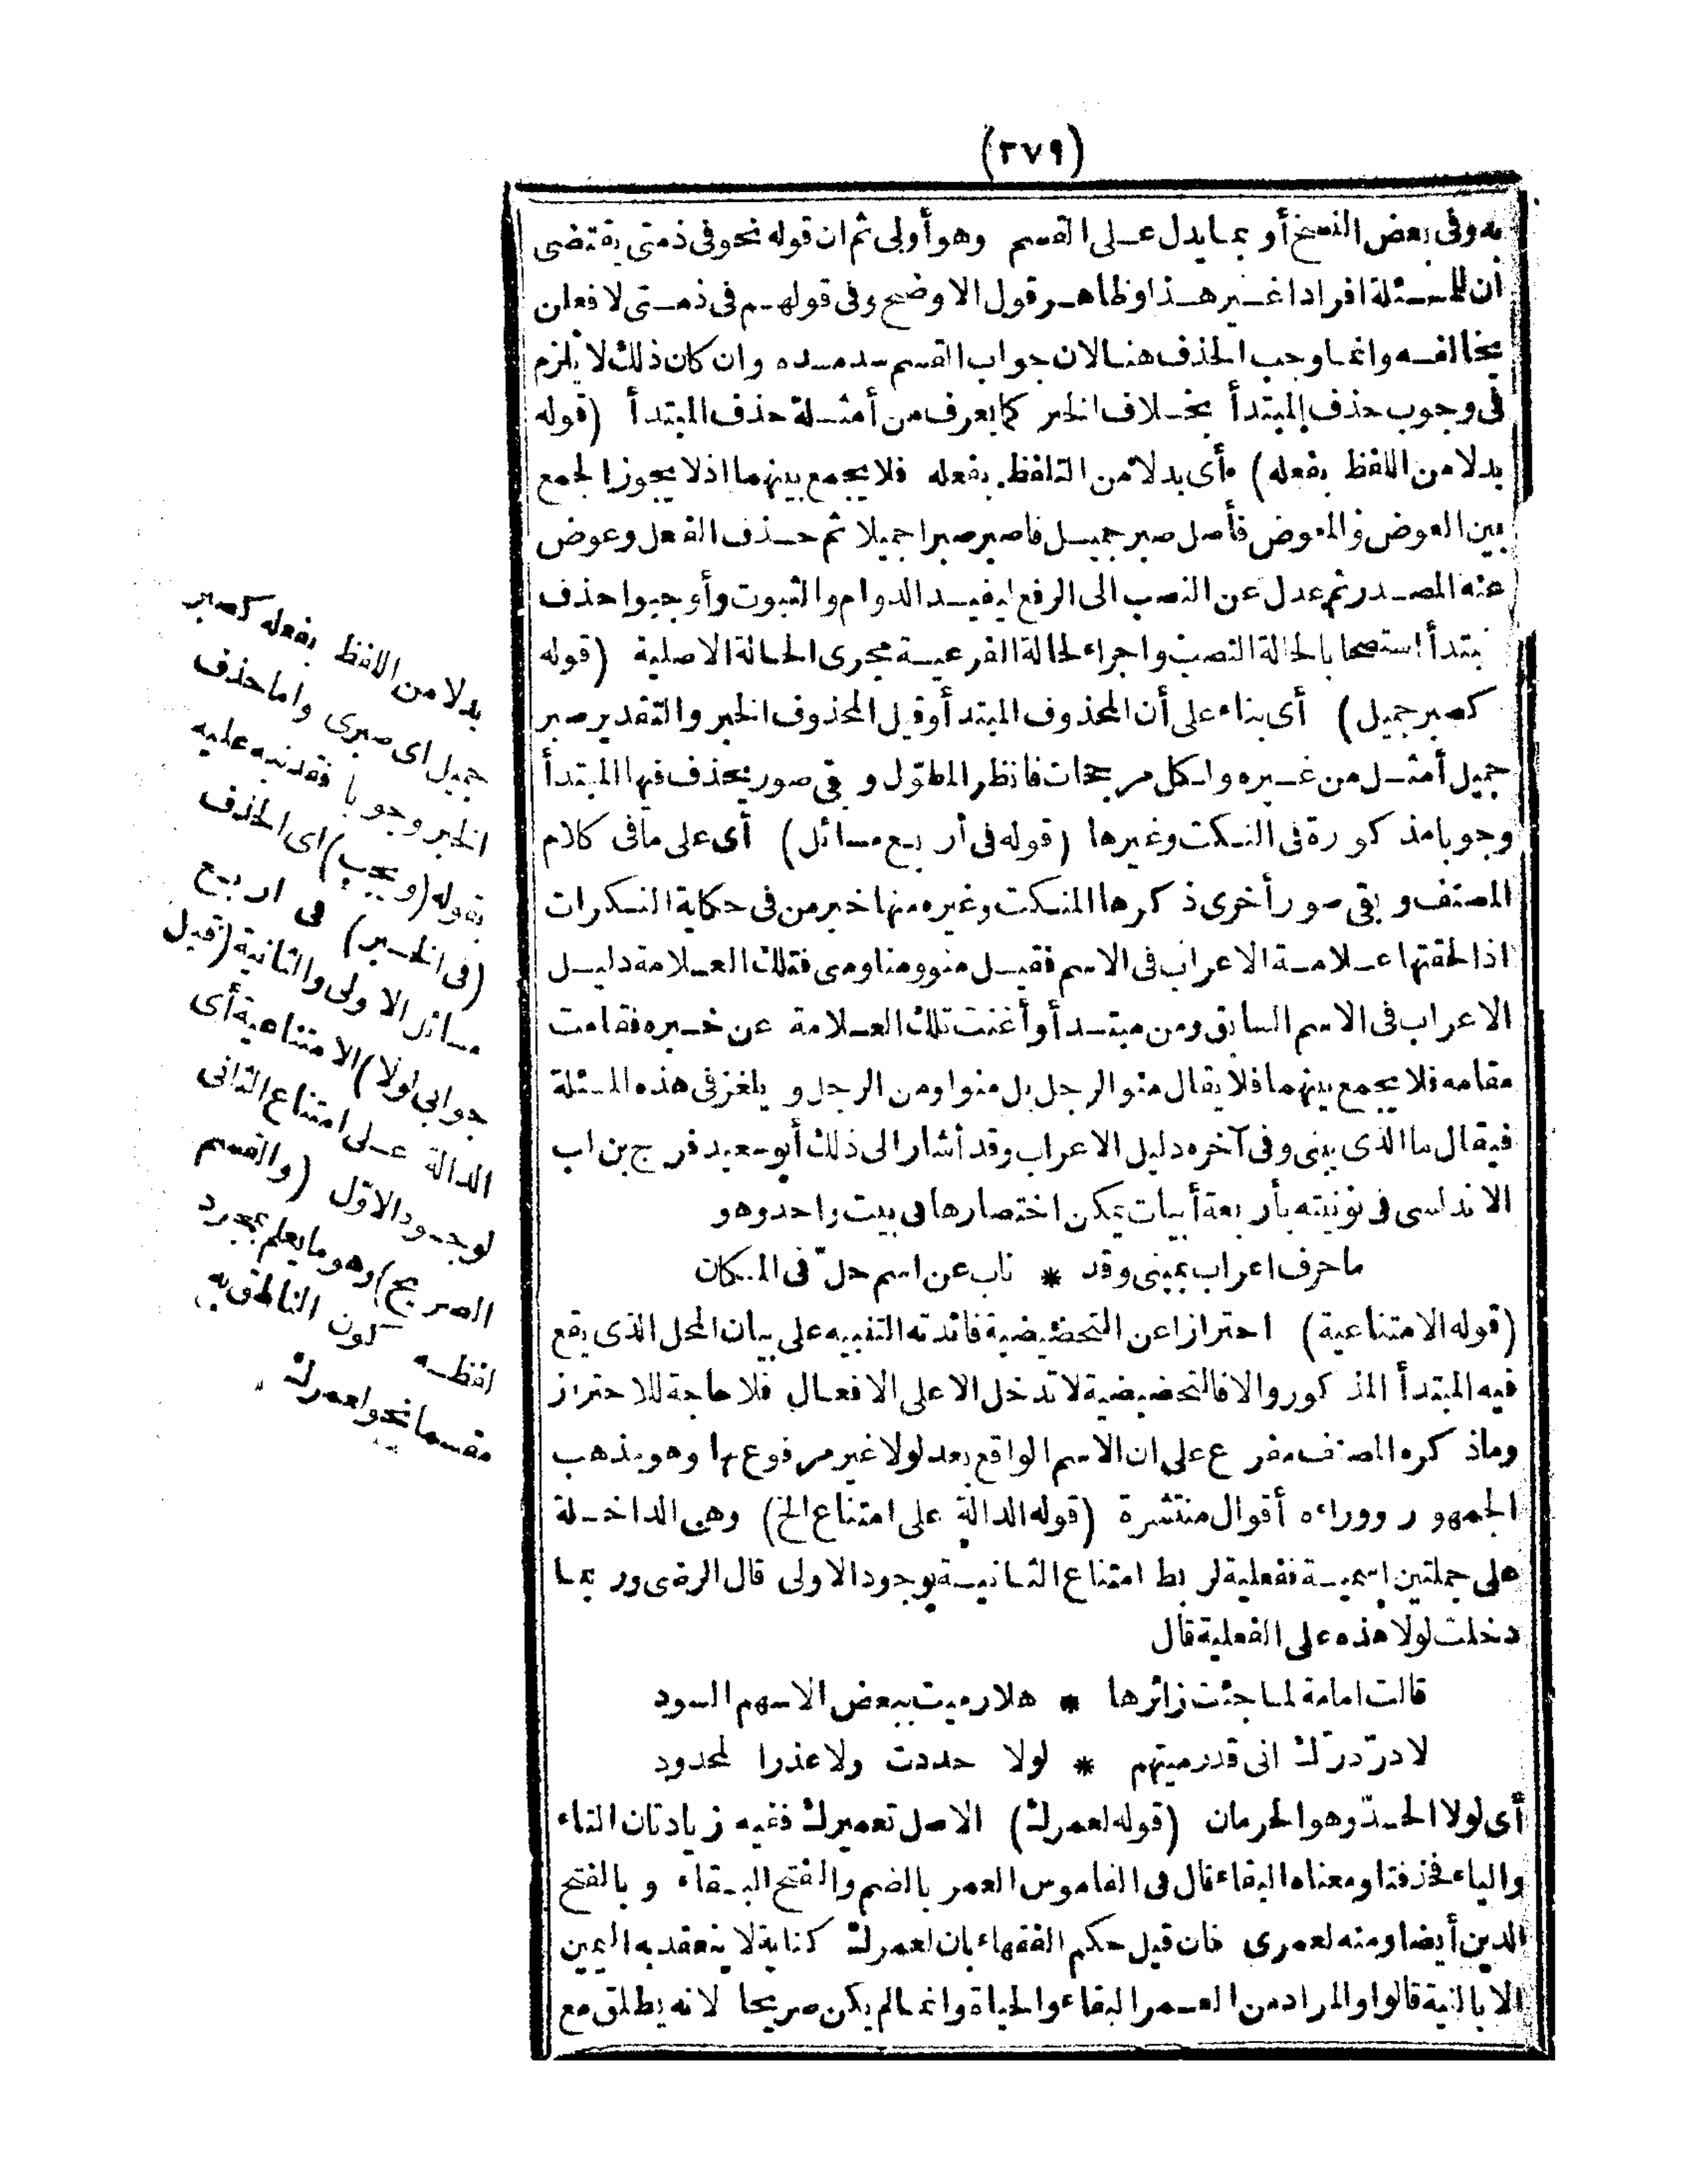 (٢٧٩)
به وفى بعض النسخ أو بما يدل على القسم وهو أولى ثم ان قوله نحو فى ذمتى يقتضى
أن للمسئلة افرادا غير هذا وظاهر قول الاوضح وفى قولهم فى ذمتى لافعلن
يخالفه وانما وجب الحذف هنا لان جواب القسم سد مسده وان كان ذلك لا يلزم
فى وجوب حذف المبتدأ بخلاف الخبر كما يعرف من أمثلة حذف المبتدأ (قوله
بدلا من اللفظ بفعله) أى بدلا من التلفظ بفعله فلا يجمع بينهما اذ لا يجوز الجمع
بين العوض والمعوض فأصل صبر جميل فاصبر صبرا جميلا ثم حذف الفعل وعوض
عنه المصدر ثم عدل عن النصب الى الرفع ليفيد الدوام والثبوت وأوجبوا حذف
بتدأ استصحابا لحالة النصب واجراء لحالة الفرعية مجرى الحالة الاصلية (قوله
كصبر جميل) أى بناء على أن المحذوف المبتدأ وقيل المحذوف الخبر والتقدير صبر
جميل أمثل من غيره ولكل مرجحات فانظر المطوّل و بقى صور يحذف فيها المبتدأ
وجوبا مذكورة فى النكت وغيرها (قوله فى أربع مسائل) أى على ما فى كلام
المصنف و بقى صور أخرى ذكرها المنكت وغيره منها خبر من فى حكاية النكرات
اذا لحقتها علامة الاعراب فى الاسم فقيل منو ومنا ومى فتلك العلامة دليل
الاعراب فى الاسم السابق ومن مبتدأ وأغنت تلك العلامة عن خبره فقامت
مقامه فلا يجمع بينهما فلا يقال منو الرجل بل منو او من الرجل و يلغز فى هذه المسئلة
فيقال ما الذى يبنى وفى آخره دليل الاعراب وقد أشار الى ذلك أبو سعيد فرج بن لب
الاندلسى فى نونيته بأربعة أبيات يمكن اختصارها فى بيت واحد وهو
ما حرف اعراب بمبنى وقد * ناب عن اسم حلّ فى المكان
(قوله الامتناعية) احترازا عن التحضيضية فائدته التنبيه على بيان المحل الذى يقع
فيه المبتدأ المذكور والا فالتحضيضية لا تدخل الا على الافعال فلا حاجة للاحتراز
وما ذكره المصنف مفرع على ان الاسم الواقع بعد لولا غير مرفوع بها وهو مذهب
الجمهور ووراءه أقوال منتشرة (قوله الدالة على امتناع الخ) وهى الداخلة
على جملتين اسمية ففعلية لربط امتناع الثانية بوجود الاولى قال الرضى وربما
دخلت لولا هذه على الفعلية قال
قالت امامة لما جئت زائرها * هلا رميت ببعض الاسهم السود
لا درّ درّك انى قد رميتهم * لولا حددت ولا عذرا لمحدود
أى لولا الحدّ وهو الحرمان (قوله لعمرك) الاصل تعميرك ففيه زيادتان التاء
والياء فحذفتا ومعناه البقاء قال فى القاموس العمر بالضم والفتح البقاء و بالفتح
الدين أيضا ومنه لعمرى فان قيل حكم الفقهاء بان لعمرك كناية لا ينعقد به اليمين
الا بالنية قالوا والمراد من العمر البقاء والحياة وانما لم يكن صريحا لانه يطلق مع
بدلا من اللفظ بفعله كصبر
جميل اى صبرى واما حذف
الخبر وجوبا فقد نبه عليه
بقوله (ويجب) اى الحذف
(فى الخبر) فى اربع
مسائل الاولى والثانية (قبل
جوابى لولا) الامتناعية أى
الدالة على امتناع الثانى
لوجود الاوّل (والقسم
الصريح) وهو ما يعلم بمجرد
لفظه كون الناطق به
مقسما نحو لعمرك